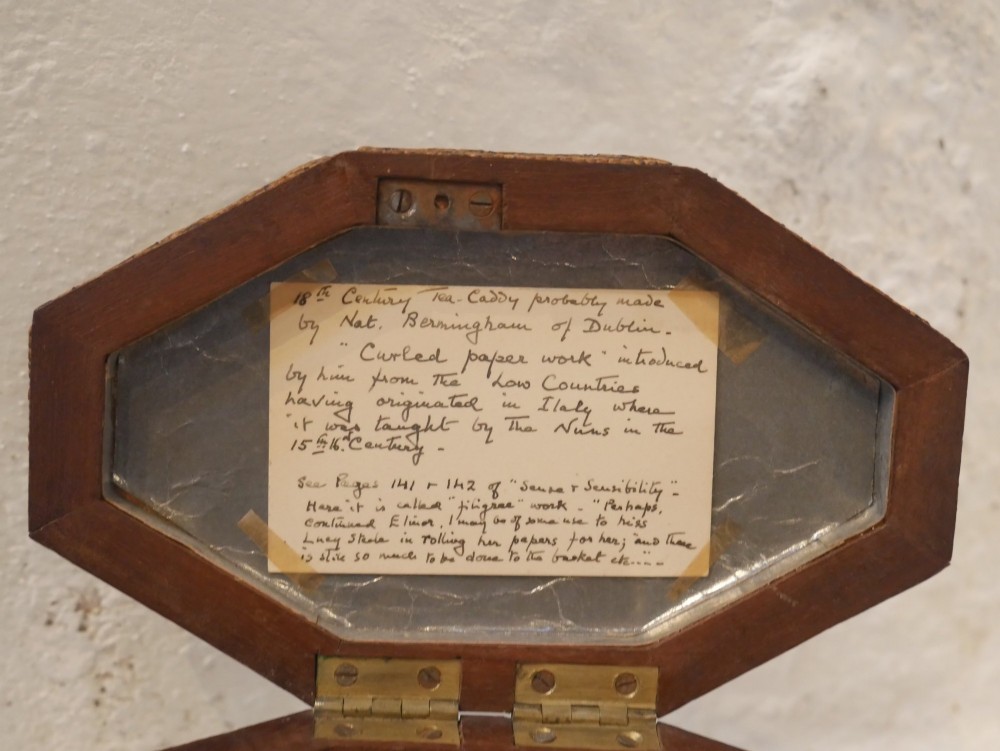 18th Century Tea-Caddy probably made
by Nat. Bermingham of Dublin.
"Curled paper work" introduced
by him from the Low Countries
having originated in Italy where
it was taught by the Nuns in the
15th 16th Century -
See Pages 141 + 142 of "Sense + Sensibility" -
Here it is called "filigree" work - "Perhaps,
continued Elinor, I may be of some use to Miss
Lucy Steele in rolling her papers for her; and there
is still so much to be done to the basket etc....."